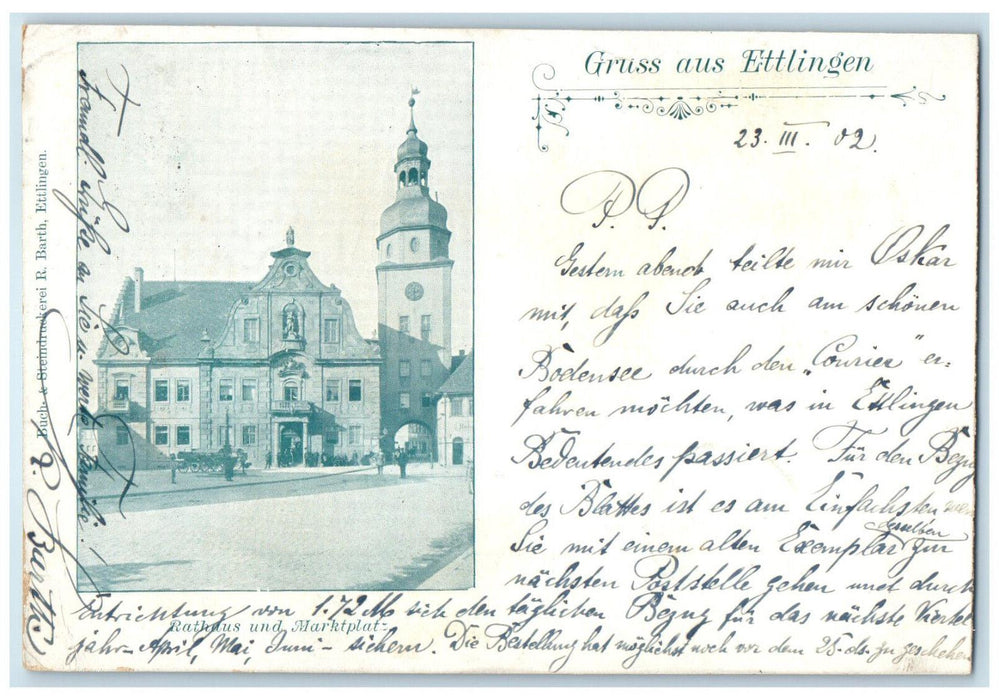 Gruss aus Ettlingen
23. III. 02.
P. P.
Gestern abend teilte mir Oskar
mit, daß Sie auch am schönen
Bodensee durch den „Courier" er-
fahren möchten, was in Ettlingen
Bedeutendes passiert. Für den Bezug
des Blattes ist es am Einfachsten wenn
Sie mit einem alten Exemplar desselben zur
nächsten Poststelle gehen und durch
Entrichtung von 1.72 M sich den täglichen Bezug für das nächste Viertel
jahr – April, Mai, Juni – sichern. Die Bestellung hat möglichst noch vor dem 25. ds. zu geschehen
Rathaus und Marktplatz
Buch- & Steindruckerei R. Barth, Ettlingen.
Grüße an Sie u. werte Familie!
R. Barth